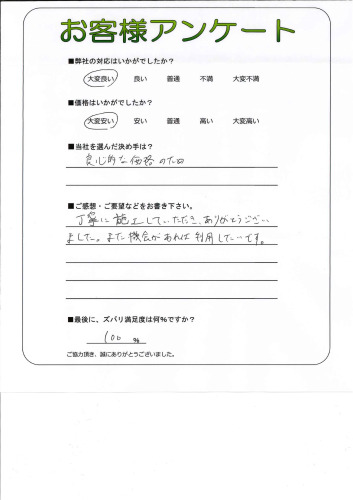 お客様アンケート
■弊社の対応はいかがでしたか?
大変良い 良い 普通 不満 大変不満
■価格はいかがでしたか?
大変安い 安い 普通 高い 大変高い
■当社を選んだ決め手は?
良心的な価格のため
■ご感想・ご要望などをお書き下さい。
丁寧に施工していただき、ありがとうござい
ました。また機会があれば利用したいです。
■最後に、ズバリ満足度は何%ですか?
100 %
ご協力頂き、誠にありがとうございました。